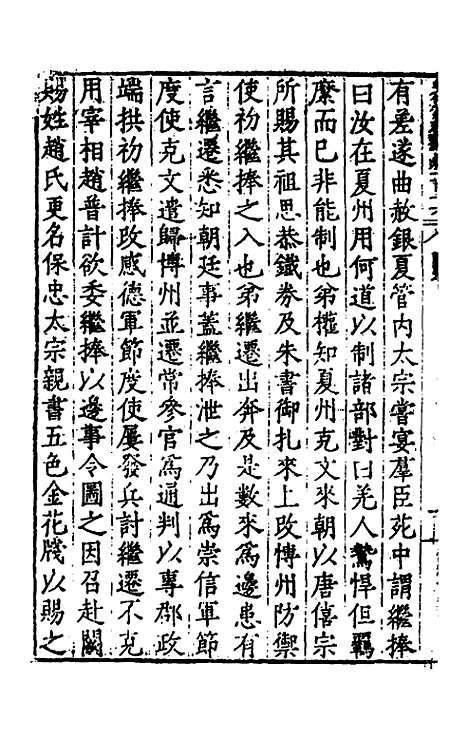 有差遂曲赦銀夏管内太宗嘗宴羣臣苑中謂繼捧
曰汝在夏州用何道以制諸部對曰羌人鷙悍但羈
縻而已非能制也弟權知夏州克文來朝以唐僖宗
所賜其祖思恭鐵券及朱書御扎來上改博州防禦
使初繼捧之入也弟繼遷出奔及是數來爲邊患有
言繼遷悉知朝廷事蓋繼捧泄之乃出爲崇信軍節
度使克文遣歸博州並選常參官爲通判以專郡政
端拱初繼捧改感德軍節度使屢發兵討繼遷不克
用宰相趙普計欲委繼捧以邊事令圖之因召赴闕
賜姓趙氏更名保忠太宗親書五色金花牋以賜之